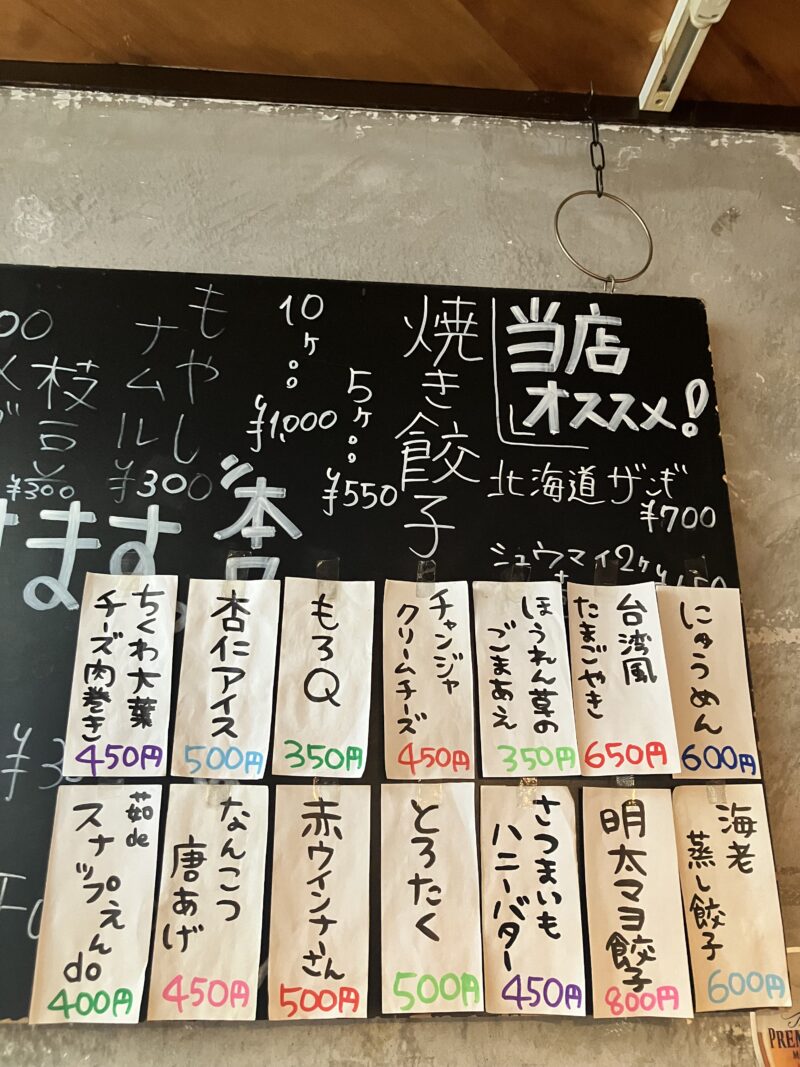 当店
オススメ!
北海道ザンギ
¥700
シュウマイ2ヶ
焼き餃子
5ヶ
¥550
10ヶ
¥1,000
もやし
ナムル
¥300
枝豆
¥300
00
ます。
本
にゅうめん
600円
台湾風
たまごやき
650円
ほうれん草の
ごまあえ
350円
チャンジャ
クリームチーズ
450円
もろQ
350円
杏仁アイス
500円
ちくわ大葉
チーズ肉巻き
450円
海老
蒸し餃子
600円
明太マヨ餃子
800円
さつまいも
ハニーバター
450円
とろたく
500円
赤ウインナーさん
500円
なんこつ
唐あげ
450円
茹de
スナップえんdo
400円